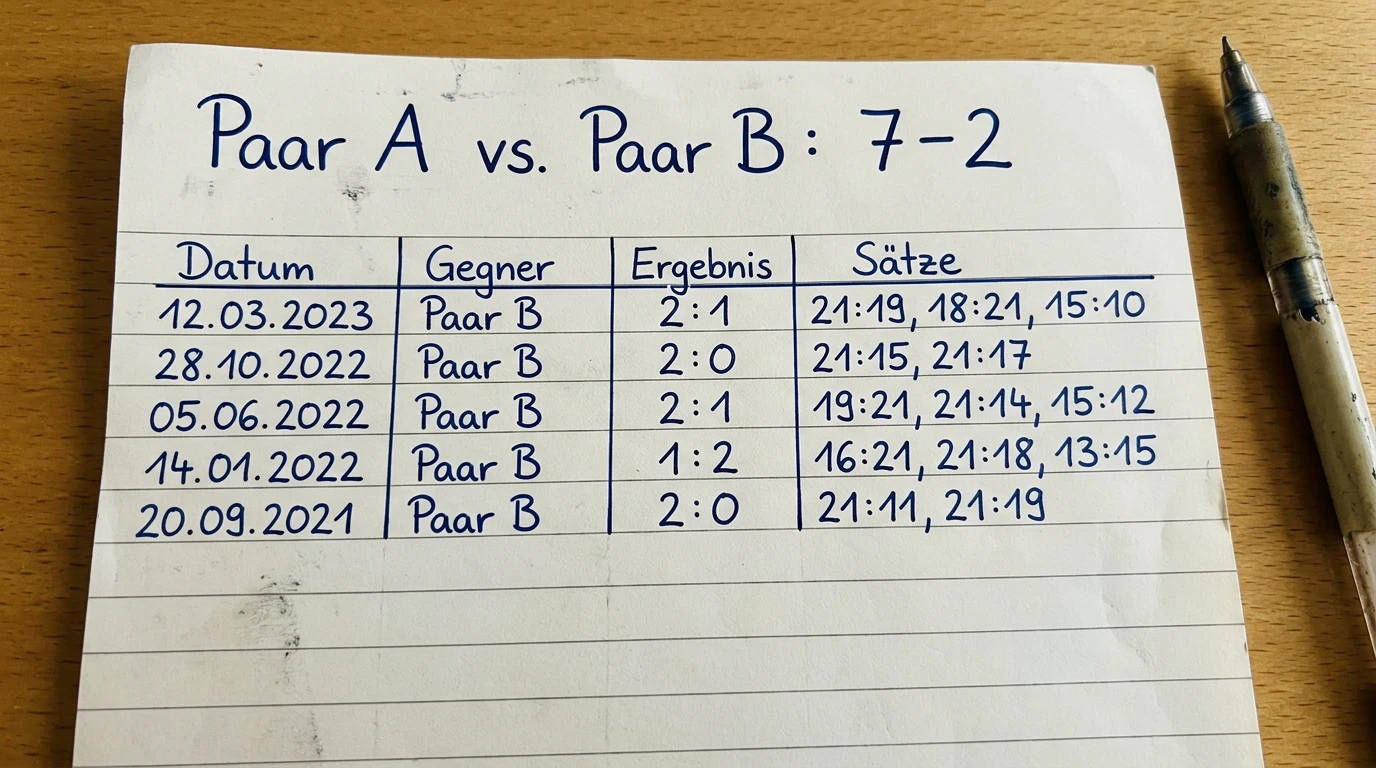 Paar A vs. Paar B: 7-2
Datum Gegner Ergebnis Sätze
12.03.2023 Paar B 2:1 21:19, 18:21, 15:10
28.10.2022 Paar B 2:0 21:15, 21:17
05.06.2022 Paar B 2:1 19:21, 21:14, 15:12
14.01.2022 Paar B 1:2 16:21, 21:18, 13:15
20.09.2021 Paar B 2:0 21:11, 21:19